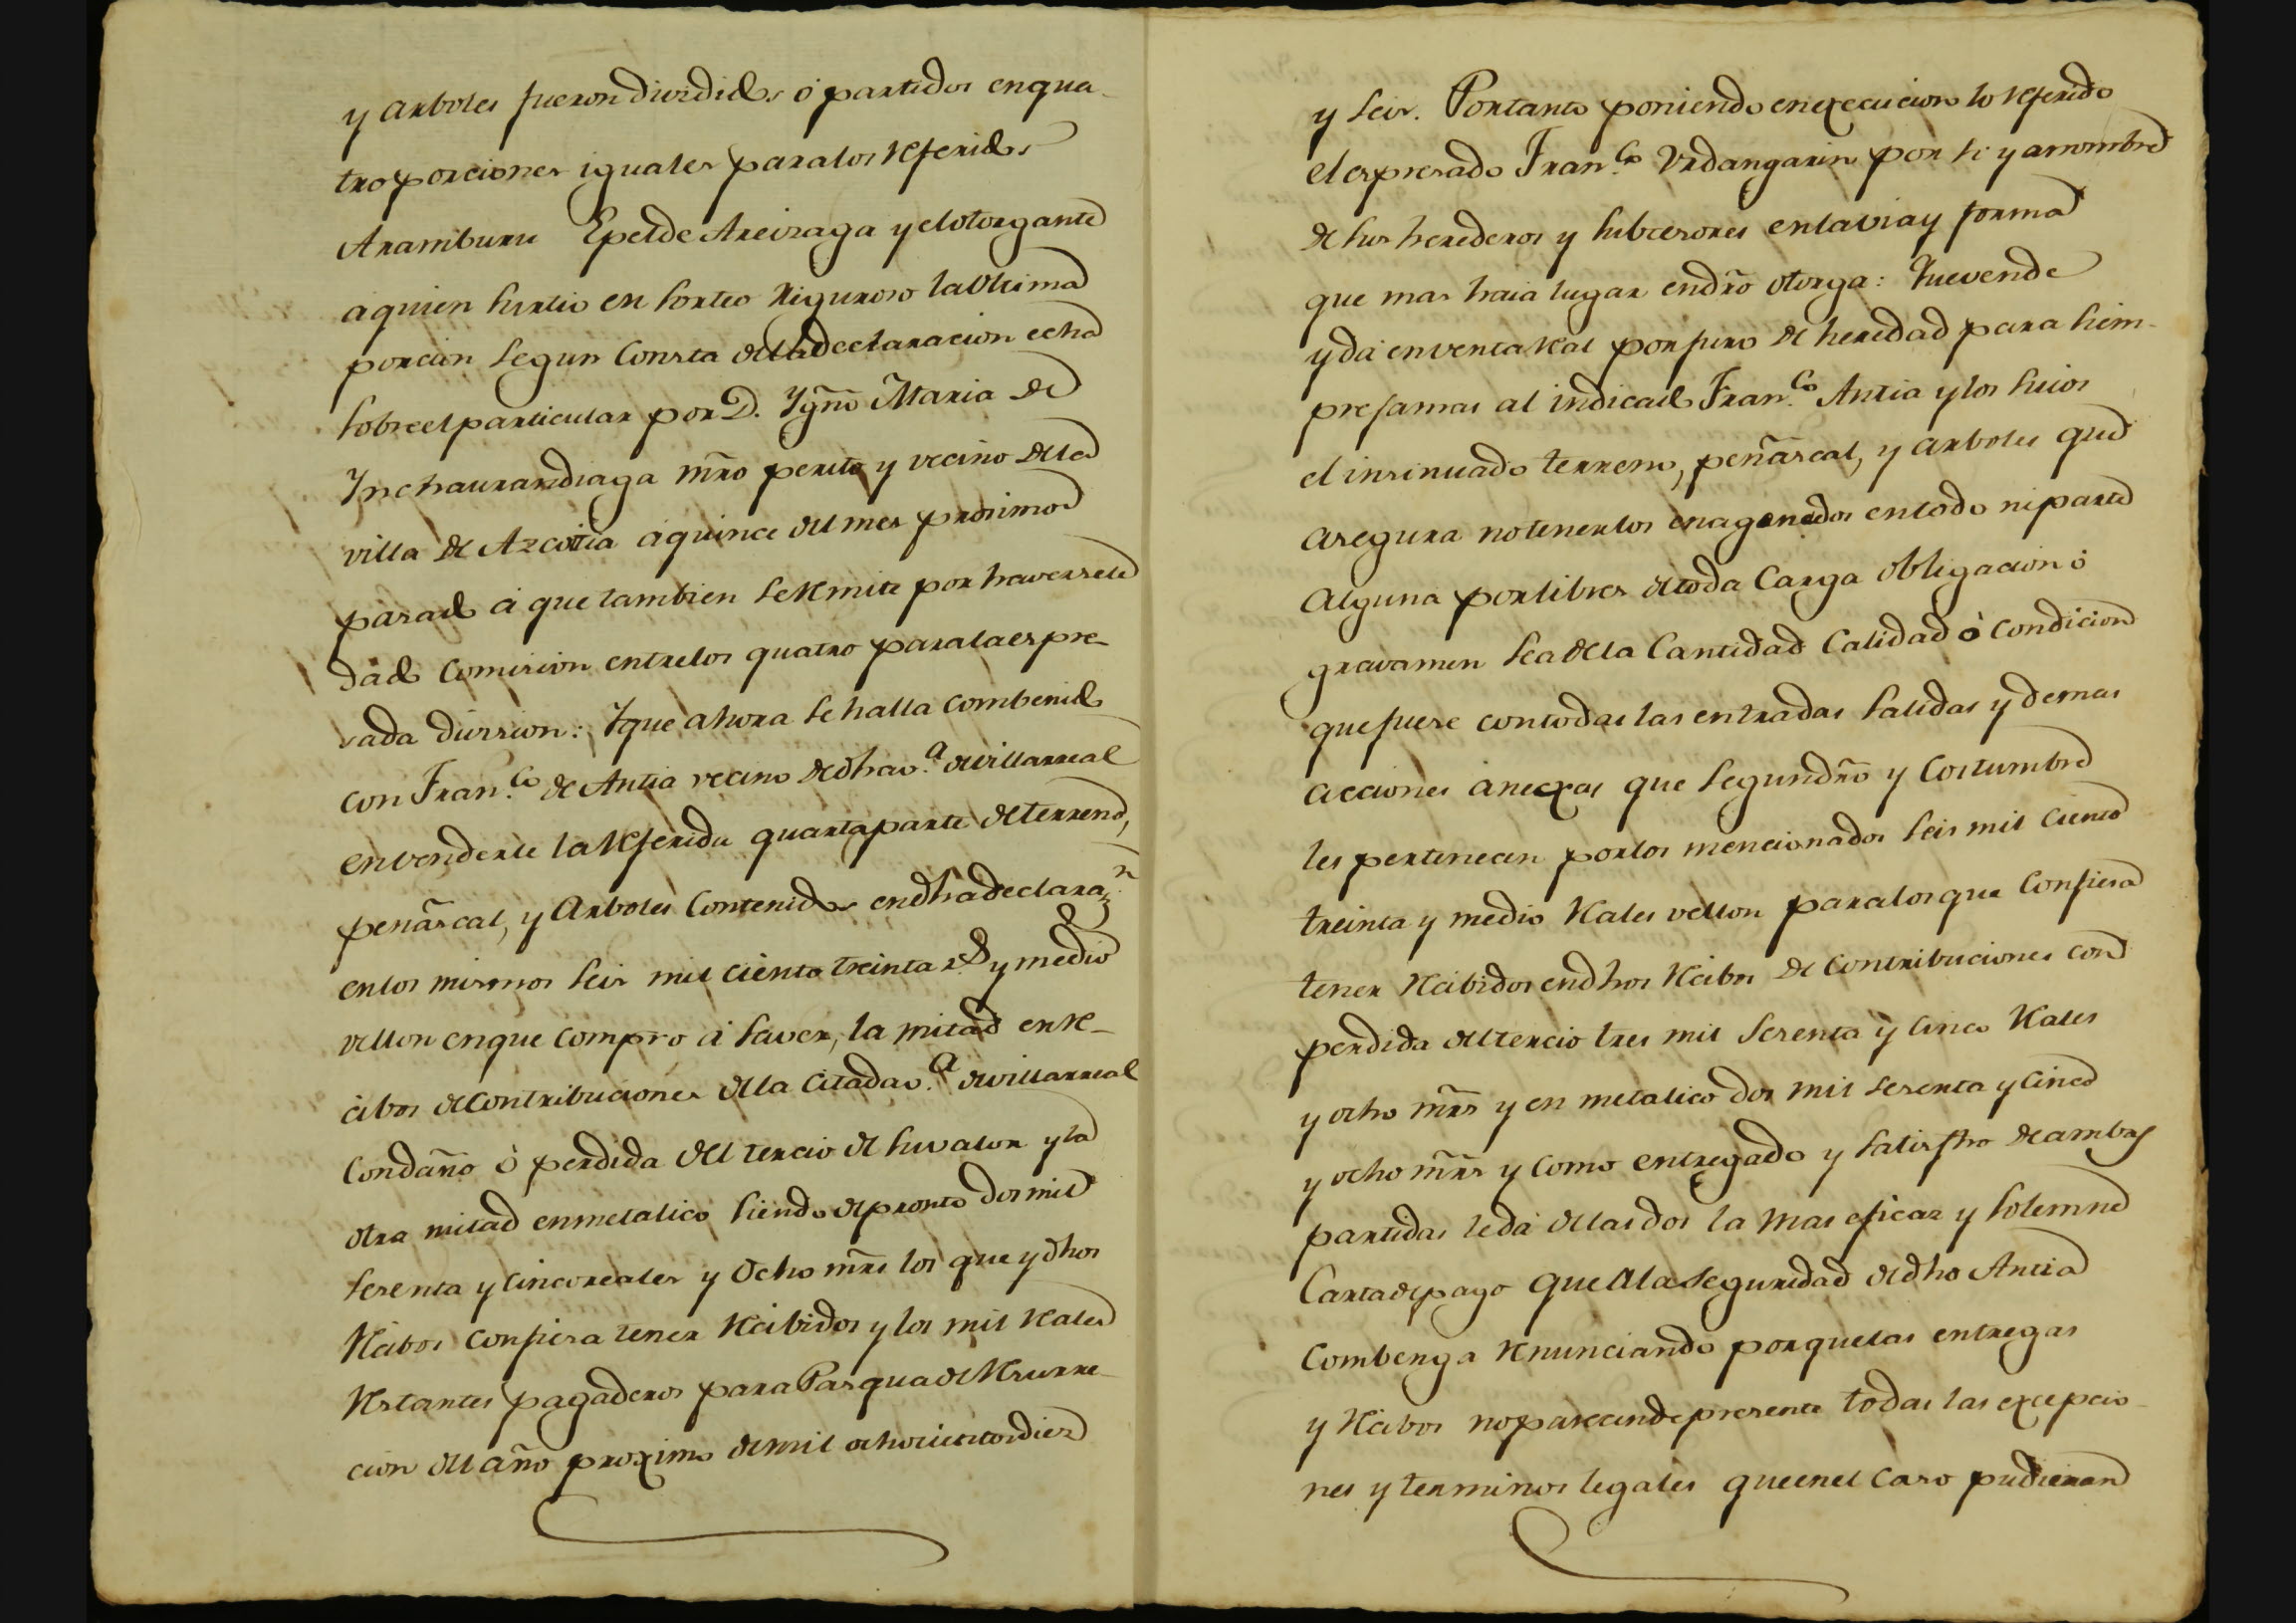 y arboles fueron dividid.s ó partidos en qua-
tro porciones iguales para los referid.s
Aramburu Epelde Areizaga y el otorgante
á quien surtio en sorteo riguroso la Ultima
porcion segun Consta de la declaracion echa
sobre el particular por D. Ygñ͂o Maria de
Ynchaurandiaga mr̃o perito y vecino de la
villa de Azcoitia á quince del mes proximo
pasado á que tambien se remite por haverse le
dado Comision entre los quatro para la espre-
sada division: Y que ahora se halla combenido
con Fran.co de Antia vecino de dha v.a de villarreal
en venderle la referida quarta parte de terreno,
peñascal, y Arboles Contenidos en dha declaraz.n
en los mismos seis mil ciento treinta r.s y medio
vellon en que compro á saver, la mitad en re-
cibos de Contribuciones de la Citada v.a de villarreal
Con daño ó perdida del tercio de su valor y la
otra mitad en metalico siendo de pronto dos mil
sesenta y cinco reales y Ocho mr̃s los que y dhos
recibos Confiesa tener recibidos y los mil reales
restantes pagaderos para Pasqua de resurre-
cion del año proximo de mil ochocientos diez
y seis. Por tanto poniendo en execucion lo referido
el espresado Fran.co Urdangarin por si y a nombre
de sus herederos y subcesores en la via y forma
que mas haia lugar en dr̃o otorga: Que vende
y da en venta real por juro de heredad para siem-
pre jamas al indicado Fran.co Antia y los suios
el insinuado terreno, peñascal, y arboles que
asegura no tenerlos enagenados en todo ni parte
Alguna por libres de toda Carga obligacion ó
gravamen sea de la Cantidad Calidad ó condicion
que fuere con todas las entradas salidas y demas
acciones anexas que segun dr̃o y Costumbre
les pertenecen por los mencionados seis mil ciento
treinta y medio reales vellon para los que Confiesa
tener recibidos en dhos recibos de Contribuciones con
perdida del tercio tres mil sesenta y cinco reales
y ocho mr̃s y en metalico dos mil sesenta y cinco
y ocho mr̃s y como entregado y satisfho de ambas
partidas le dá de las dos la mas eficaz y solemne
Carta de pago que a la seguridad de dho Antia
Combenga renunciando por que las entregas
y recibos no parecen de presente todas las excepcio-
nes y terminos legales que en el caso pudieran